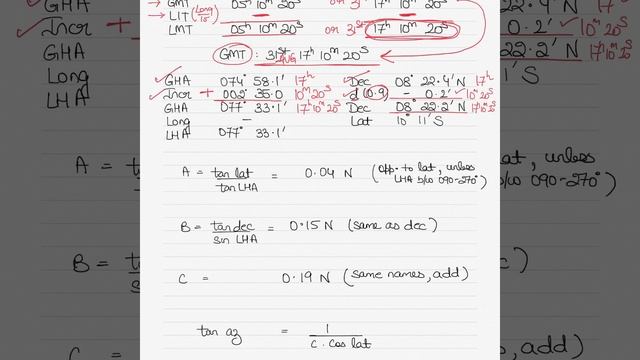 GMT 05ʰ 10ᵐ 20ˢ or 3 17ʰ 10ᵐ 20ˢ
→ LIT (Long/15)
LMT 05ʰ 10ᵐ 20ˢ or 31ˢᵗ 17ʰ 10ᵐ 20ˢ
GMT : 31ˢᵗ AUG 17ʰ 10ᵐ 20ˢ
GHA 074° 58.1' 17ʰ Dec 08° 22.4'N 17ʰ
Incr + 002° 35.0 10ᵐ20ˢ d (0.9) - 0.2' 10ᵐ20ˢ
GHA 077° 33.1' 17ʰ10ᵐ20ˢ Dec 08° 22.2' N 17ʰ10ᵐ20ˢ
Long - Lat 10° 11'S
LHA 077° 33.1'
A = tan lat / tan LHA = 0.04 N (opp. to lat, unless LHA b/w 090-270°)
B = tan dec / sin LHA = 0.15 N (same as dec)
C = 0.19 N (same names, add)
tan az = 1 / C. cos lat
GHA
Incr +
GHA
Long
LHA
A =
B = ta
si
22.4'N 17
0.2' 10ᵐ20ˢ
22.2' N 17ʰ10ᵐ20ˢ
1'S
at, unless
b/w 090-270°)
c)
, add)